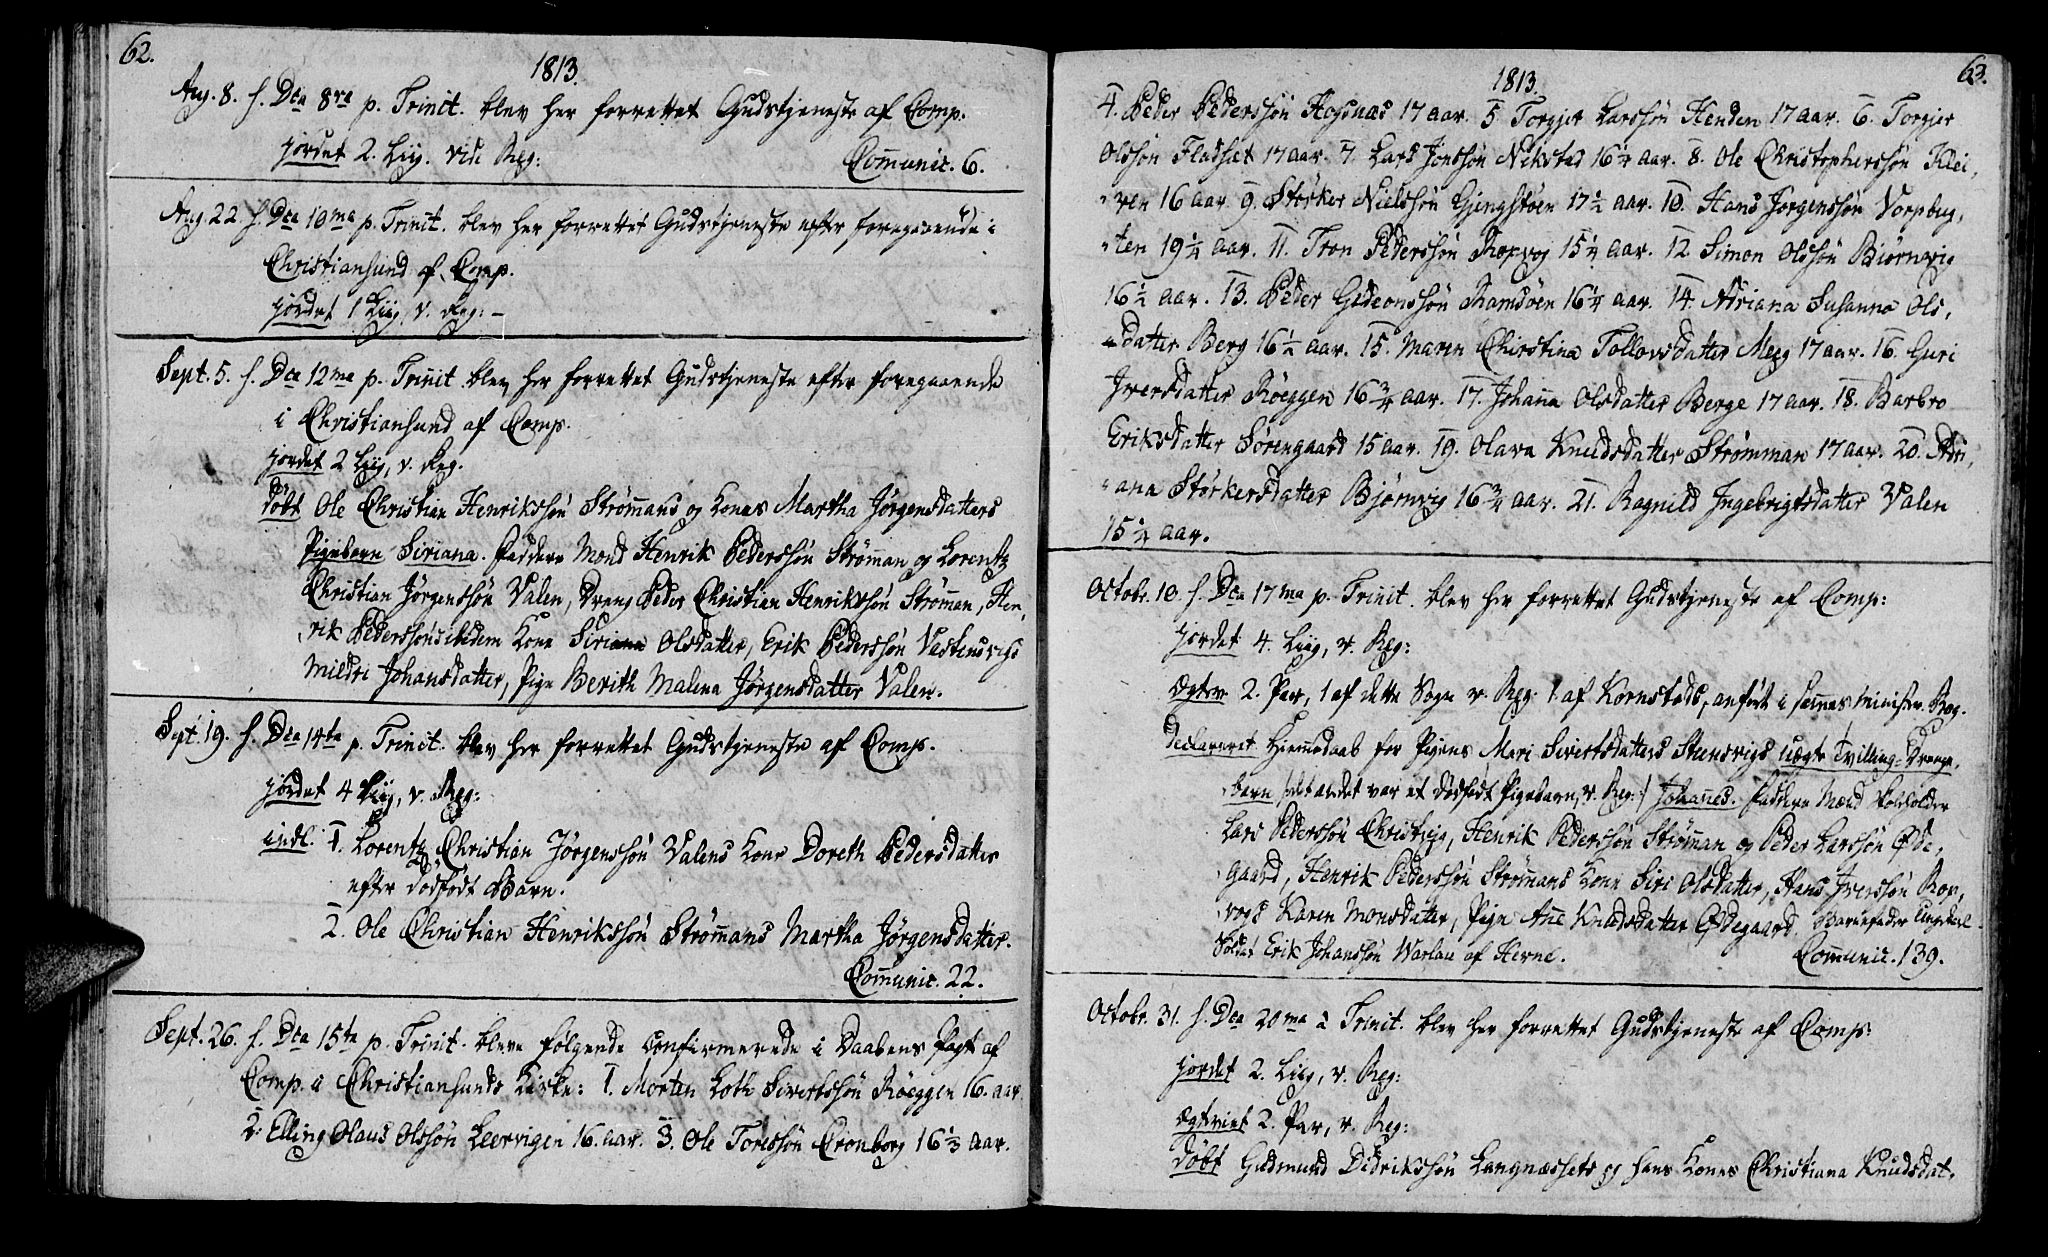 62.
1813.
Aug. 8. s. Dca 8va p. Trinit. blev her forrettet Gudstjeneste af Comp.
jordet 2. Liig. vide Reg:
Com̄unic. 6.
Aug. 22. s. Dca 10ma p. Trinit. blev her forrettet Gudstjeneste efter foregaaende i
Christiansund af Comp.
jordet 1 Liig, v. Reg: –
Sept. 5. s. Dca 12ma p. Trinit. blev her forrettet Gudstjeneste efter foregaaende
i Christiansund af Comp.
jordet 2 Liig, v. Reg.
döbt Ole Christian Henrikssön Ström̄ans og Kones Martha Jörgensdatters
Pigebarn Siriana. Faddere Mænd Henrik Pederssön Ström̄an og Lorentz
Christian Jörgenssön Valen, Dreng Peder Christian Henrikssön Ström̄an, Hen,
,rik Pederssöns ibidem Kone Siriana Olsdatter, Erik Pederssön Vastensvigs
Mildri Johansdatter, Pige Berith Malena Jörgensdatter Valen.
Sept. 19. s. Dca 14ta p. Trinit. blev her forrettet Gudstjeneste af Comp.
jordet 4 Liig, v. Reg:
indl. 1. Lorentz Christian Jörgenssön Valens Kone Doreth Pedersdatter
efter dödfödt Barn.
2. Ole Christian Henrikssön Ström̄ans Martha Jörgensdatter.
Com̄unic. 22.
Sept. 26. s. Dca 15ta p. Trinit. bleve fölgende confirmerede i Daabens Pagt af
Comp. i Christiansunds Kirke: 1. Morten Loth Sivertssön Röeggen 16. aar
2. Elling Olaus Olssön Leervigen 16. aar. 3. Ole Toressön Cronborg 16 1/3 aar.
63.
1813.
4. Peder Pederssön Hogsnæs 17 aar. 5 Torgjer Larssön Henden 17 aar. 6. Torgier
Olssön Fladset 17 aar. 7. Lars Jonssön Nikstad 16 1/4 aar. 8. Ole Christopherssön Klei,
,ven 16 aar. 9. Störker Nielssön Gjengstöen 17 1/2 aar. 10. Hans Jörgenssön Vorpbug,
,ten 19 1/4 aar. 11. Tron Pederssön Roxvog 15 1/4 aar. 12 Simon Olssön Biörnvig
16 1/2 aar. 13. Peder Gideonssön Ramsöen 16 1/4 aar. 14. Adriana Susanna Ols,
,datter Berg 16 1/2 aar. 15. Maren Chirstina Tollovsdatter Meeg 17 aar. 16. Guri
Iversdatter Röeggen 16 3/4 aar. 17. Johan̄a Olsdatter Berge 17 aar. 18. Barbro
Eriksdatter Sörengaard 15 aar. 19. Olava Knudsdatter Strömman 17 aar. 20. Adri,
,ana Störkersdatter Bjørnvig 16 3/4 aar. 21. Ragnild Ingebrigtsdatter Valen
15 1/4 aar.
Octobr. 10. s. Dca 17ma p. Trinit. blev her forrettet Gudstjeneste af Comp:
jordet 4. Liig, v. Reg:
Ægtev. 2. Par, 1 af dette Sogn v. Reg: 1 af Kornstads, anfört i sam̄es Minister. Bog.
declareret Hjemmedaab for Pigens Mari Sivertsdatters Stensvigs uægte Tvilling-Drenge,
,barn (det andet var et dödfödt Pigebarn, v. Reg:) Johan̄es. Faddere Mænd Skoleholder
Lars Pederssön Christvig, Henrik Pederssön Ström̄an og Peder Larssön Øde,
,gaard, Henrik Pederssön Ström̄ans Kone Siri Olsdatter, Hans Iverssön Rox,
,vogs Karen Monsdatter, Pige An̄e Knudsdatter Ødegaard. Barnefader Ungkarl
Soldat Erik Johanssön Warlau af Herne.
Com̄unic. 139.
Octobr. 31. s. Dca 20ma à Trinit. blev her forrettet Gudstjeneste af Comp:
jordet 2. Liig, v. Reg:
Ægtviet 2. Par, v. Reg:
döbt Gudmund Didrikssön Langnæssets og hans Kones Christiana Knudsdat,